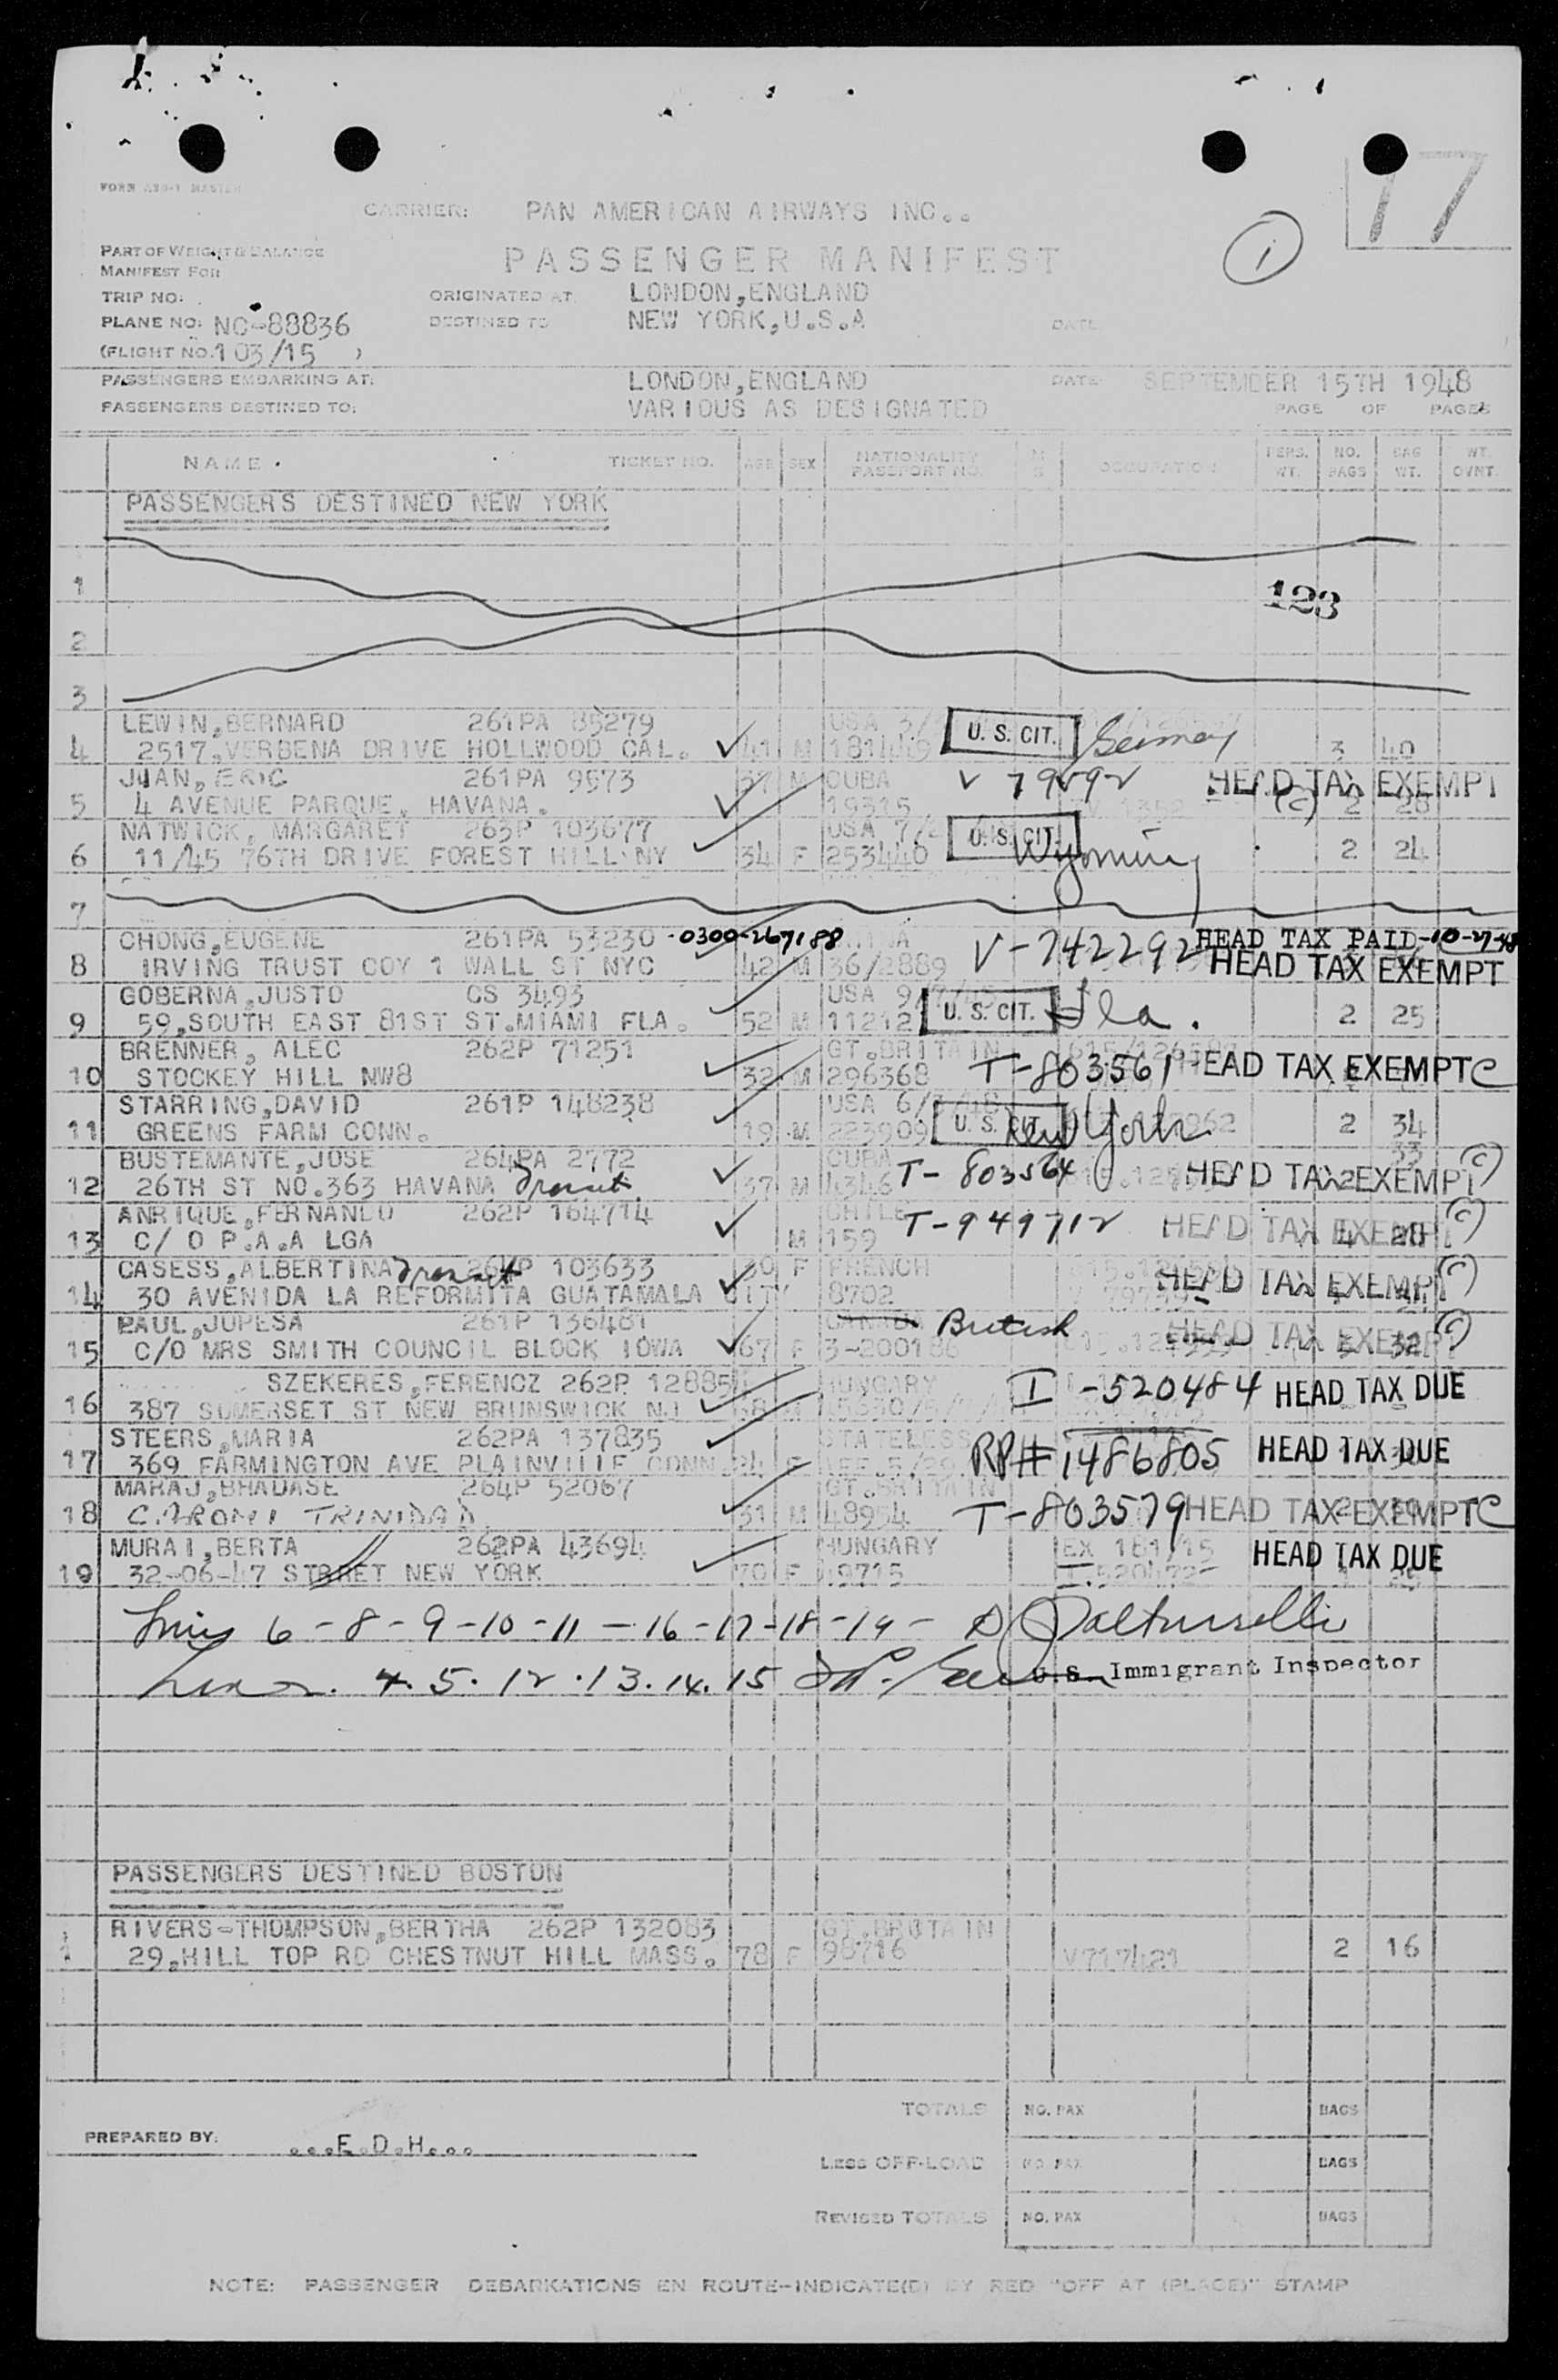 77
FORM
CARRIER: PAN AMERICAN AIRWAYS INC..
PART OF WEIGHT & BALANCE
MANIFEST FOR
PASSENGER MANIFEST
1
TRIP NO:
ORIGINATED AT LONDON,ENGLAND
PLANE NO: NC-88836
DESTINED TO NEW YORK,U.S.A
DATE
(FLIGHT NO.103/15 )
PASSENGERS EMBARKING AT: LONDON,ENGLAND DATE SEPTEMBER 15TH 1948
PASSENGERS DESTINED TO: VARIOUS AS DESIGNATED PAGE OF PAGES
NAME. TICKET NO. AGE SEX NATIONALITY PASSPORT NO. M S OCCUPATION PERS. WT. NO. BAGS BAG WT. WT. OVNT.
PASSENGERS DESTINED NEW YORK
1
123
2
3
LEWIN,BERNARD 261PA 85279 USA 3/ U. S. CIT.
4 2517,VERBENA DRIVE HOLLWOOD CAL. 41 M 181449 3 40
JUAN,ERIC 261PA 9573 37 M CUBA V 79592 HEAD TAX EXEMPT
5 4 AVENUE PARQUE, HAVANA. 19315 (C) 2 28
NATWICK, MARGARET 263P 103677 USA 7/ U. S. CIT. Wyoming
6 11/45 76TH DRIVE FOREST HILL NY 34 F 253440 2 24
7
CHONG,EUGENE 261PA 53230 0300-267188 V-742292 HEAD TAX PAID-10-27-48
8 IRVING TRUST COY 1 WALL ST NYC 42 M 36/2889 HEAD TAX EXEMPT
GOBERNA,JUSTO CS 3493 USA 9/ U. S. CIT. Fla.
9 59,SOUTH EAST 81ST ST.MIAMI FLA. 52 M 11212 2 25
BRENNER, ALEC 262P 71251 GT.BRITAIN
10 STOCKEY HILL NW8 32 M 296368 T-803561 HEAD TAX EXEMPT C
STARRING,DAVID 261P 148238 USA 6/ U. S. CIT. New York
11 GREENS FARM CONN. 19 M 223909 2 34
BUSTEMANTE,JOSE 264PA 2772 CUBA 33
12 26TH ST NO.363 HAVANA Transit 37 M 4346 T-803564 HEAD TAX EXEMPT (C)
ANRIQUE,FERNANDO 262P 164714 CHILE T-949712 HEAD TAX EXEMPT (C)
13 C/ O P.A.A LGA M 159
CASESS,ALBERTINA Transit 264P 103633 30 F FRENCH HEAD TAX EXEMPT (C)
14 30 AVENIDA LA REFORMITA GUATAMALA CITY 8702
PAUL,JUPESA 261P 136481 CANADA British HEAD TAX EXEMPT (C)
15 C/O MRS SMITH COUNCIL BLOCK IOWA 67 F 3-200186 3 32
SZEKERES,FERENCZ 262P 12885 HUNGARY I-520484 HEAD TAX DUE
16 387 SUMERSET ST NEW BRUNSWICK NJ 68 M
STEERS,MARIA 262PA 137835 STATELESS RP# 1486805 HEAD TAX DUE
17 369 FARMINGTON AVE PLAINVILLE CONN
MARAJ,BHADASE 264P 52067 GT.BRITAIN
18 C. TRINIDAD 31 M 48954 T-803579 HEAD TAX EXEMPT C
MURAI,BERTA 262PA 43694 HUNGARY EX 181/15 HEAD TAX DUE
19 32-06-47 STREET NEW YORK 70 F 49715 I.520472
Lines 6-8-9-10-11-16-17-18-19-
4. 5. 12. 13. 14. 15 U.S. Immigrant Inspector
PASSENGERS DESTINED BOSTON
RIVERS-THOMPSON,BERTHA 262P 132083 GT.BRITAIN
1 29,HILL TOP RD CHESTNUT HILL MASS. 78 F 98716 V717421 2 16
TOTALS NO. PAX BAGS
PREPARED BY: ...E.D.H...
LESS OFF-LOAD NO. PAX BAGS
REVISED TOTALS NO. PAX BAGS
NOTE: PASSENGER DEBARKATIONS EN ROUTE-INDICATE(D) BY RED "OFF AT (PLACE)" STAMP